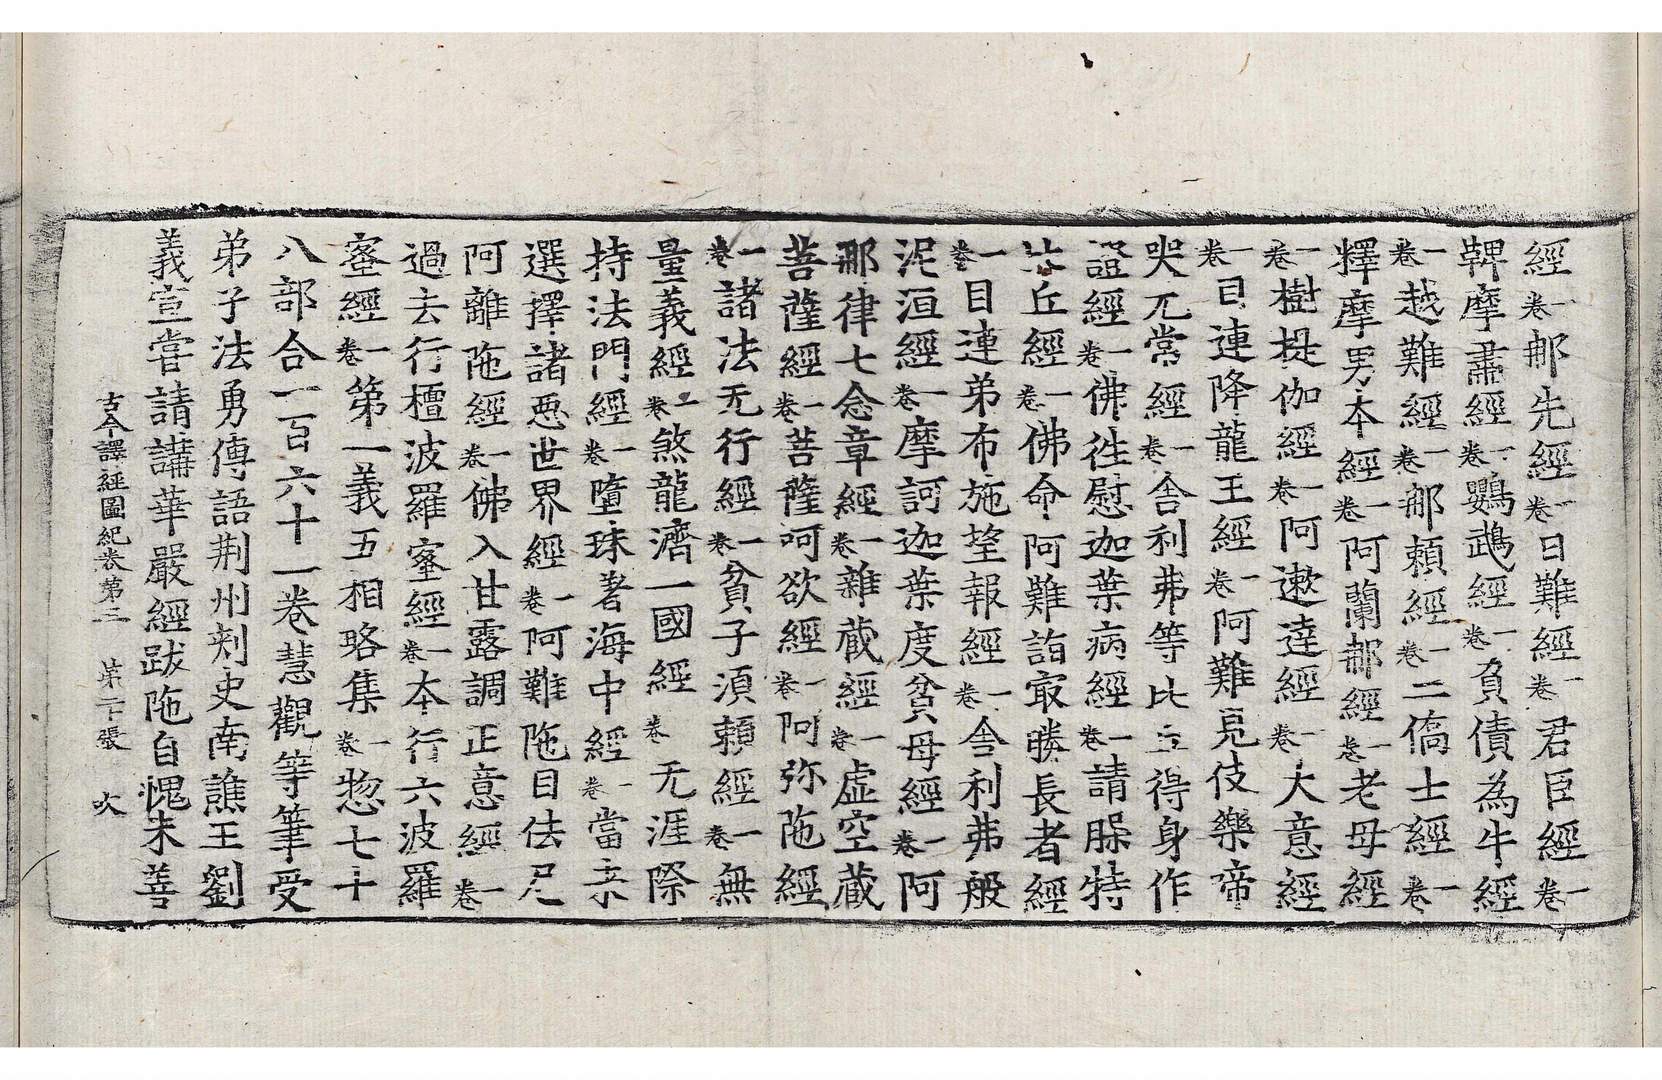 經一卷那先經一卷日難經一卷君臣經一卷
鞞摩肅經一卷鸚鵡經一卷負債為牛經
一卷越難經一卷那賴經一卷二僑士經一卷
釋摩男本經一卷阿蘭那經一卷老母經
一卷樹提伽經一卷阿遬達經一卷大意經
一卷目連降龍王經一卷阿難見伎樂啼
哭无常經一卷舍利弗等比丘得身作
證經一卷佛徃慰迦葉病經一卷請般特
比丘經一卷佛命阿難詣㝡勝長者經
一卷目連弟布施望報經一卷舍利弗般
泥洹經一卷摩訶迦葉度貧母經一卷阿
那律七念章經一卷雜蔵經一卷虛空蔵
菩薩經一卷菩薩呵欲經一卷阿弥陁經
一卷諸法无行經一卷貧子湏賴經一卷無
量義經二卷煞龍濟一國經卷无涯際
持法門經一卷墮珠著海中經一卷當來
選擇諸惡世界經一卷阿難陁目佉尼
阿離陁經一卷佛入甘露調正意經一卷
過去行檀波羅蜜經一卷本行六波羅
蜜經一卷第一義五相略集一卷惣七十
八部合一百六十一卷慧觀等筆受
弟子法勇傳語荆州刾史南譙王劉
義宣甞請講華嚴經跋陁自愧未善
古今譯經圖紀卷第三 第二十張 吹